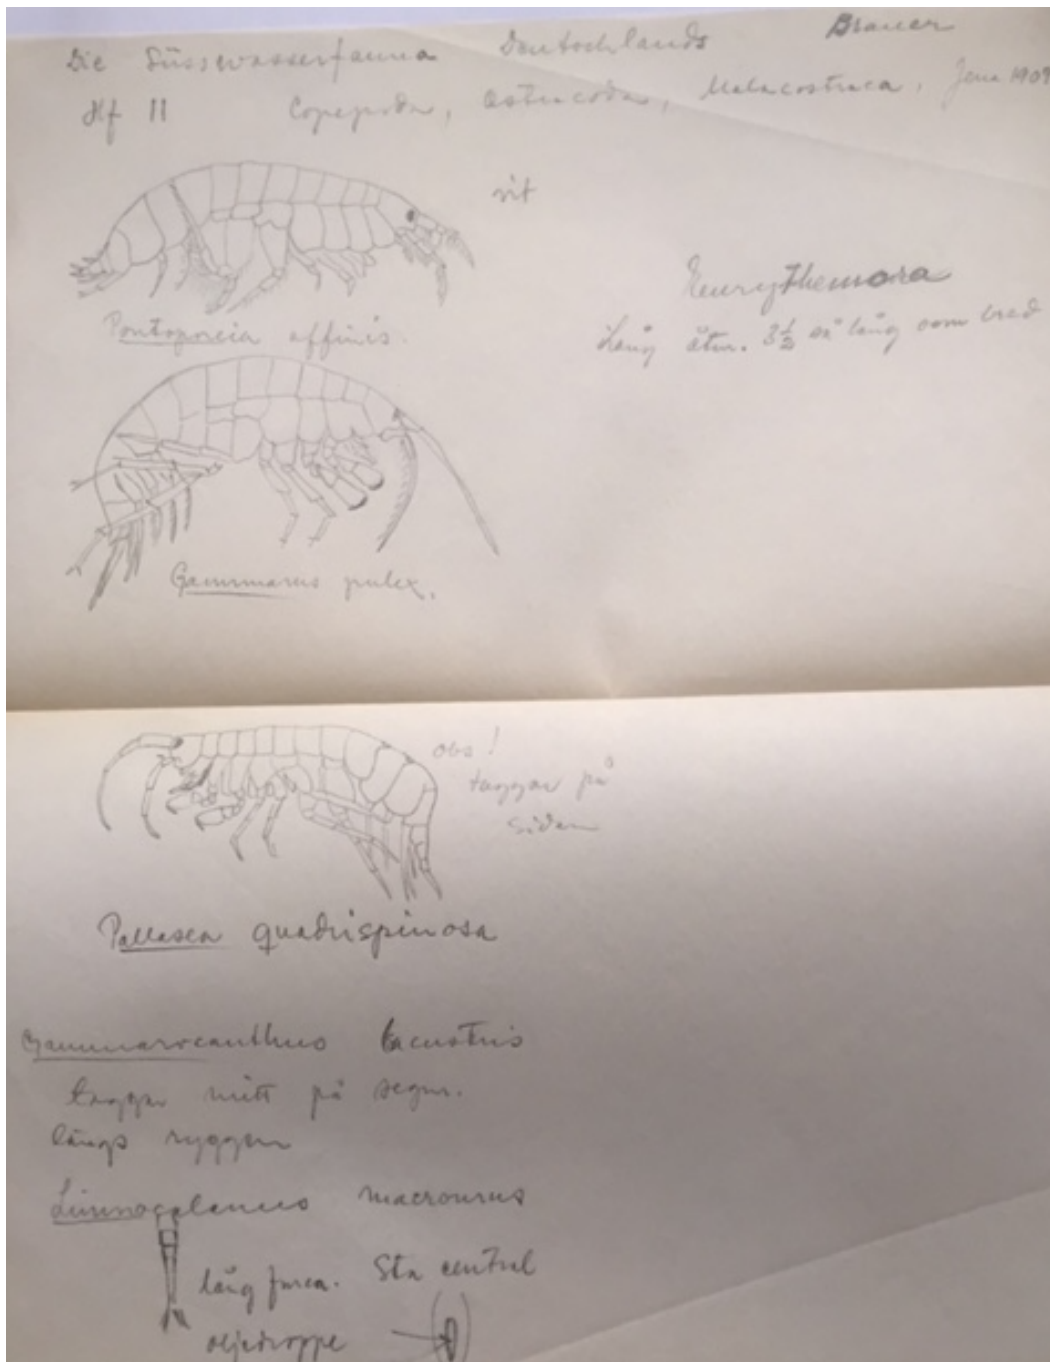 Die Süsswasserfauna Deutschlands Brauer
Hf 11 Copepoda, Ostracoda, Malacostraca, Jena 1909
vit
Pontoporeia affinis.
Eurythemora
Lång 3½ så lång som bred
Gammarus pulex.
obs!
taggar på
sidan
Pallasea quadrispinosa
Gammarocanthus lacustris
taggar mitt på segm.
längs ryggen
Limnocalanus macrourus
lång furca. Sta central
oljedroppe